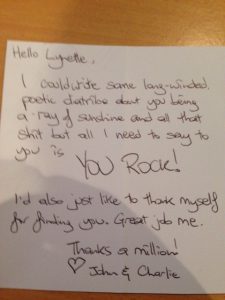 Hello Lynette,
I could write some long-winded,
poetic diatribe about you being
a ray of sunshine and all that
shit but all I need to say to
you is
YOU ROCK!
I'd also just like to thank myself
for finding you. Great job me.
Thanks a million!
♡ John & Charlie